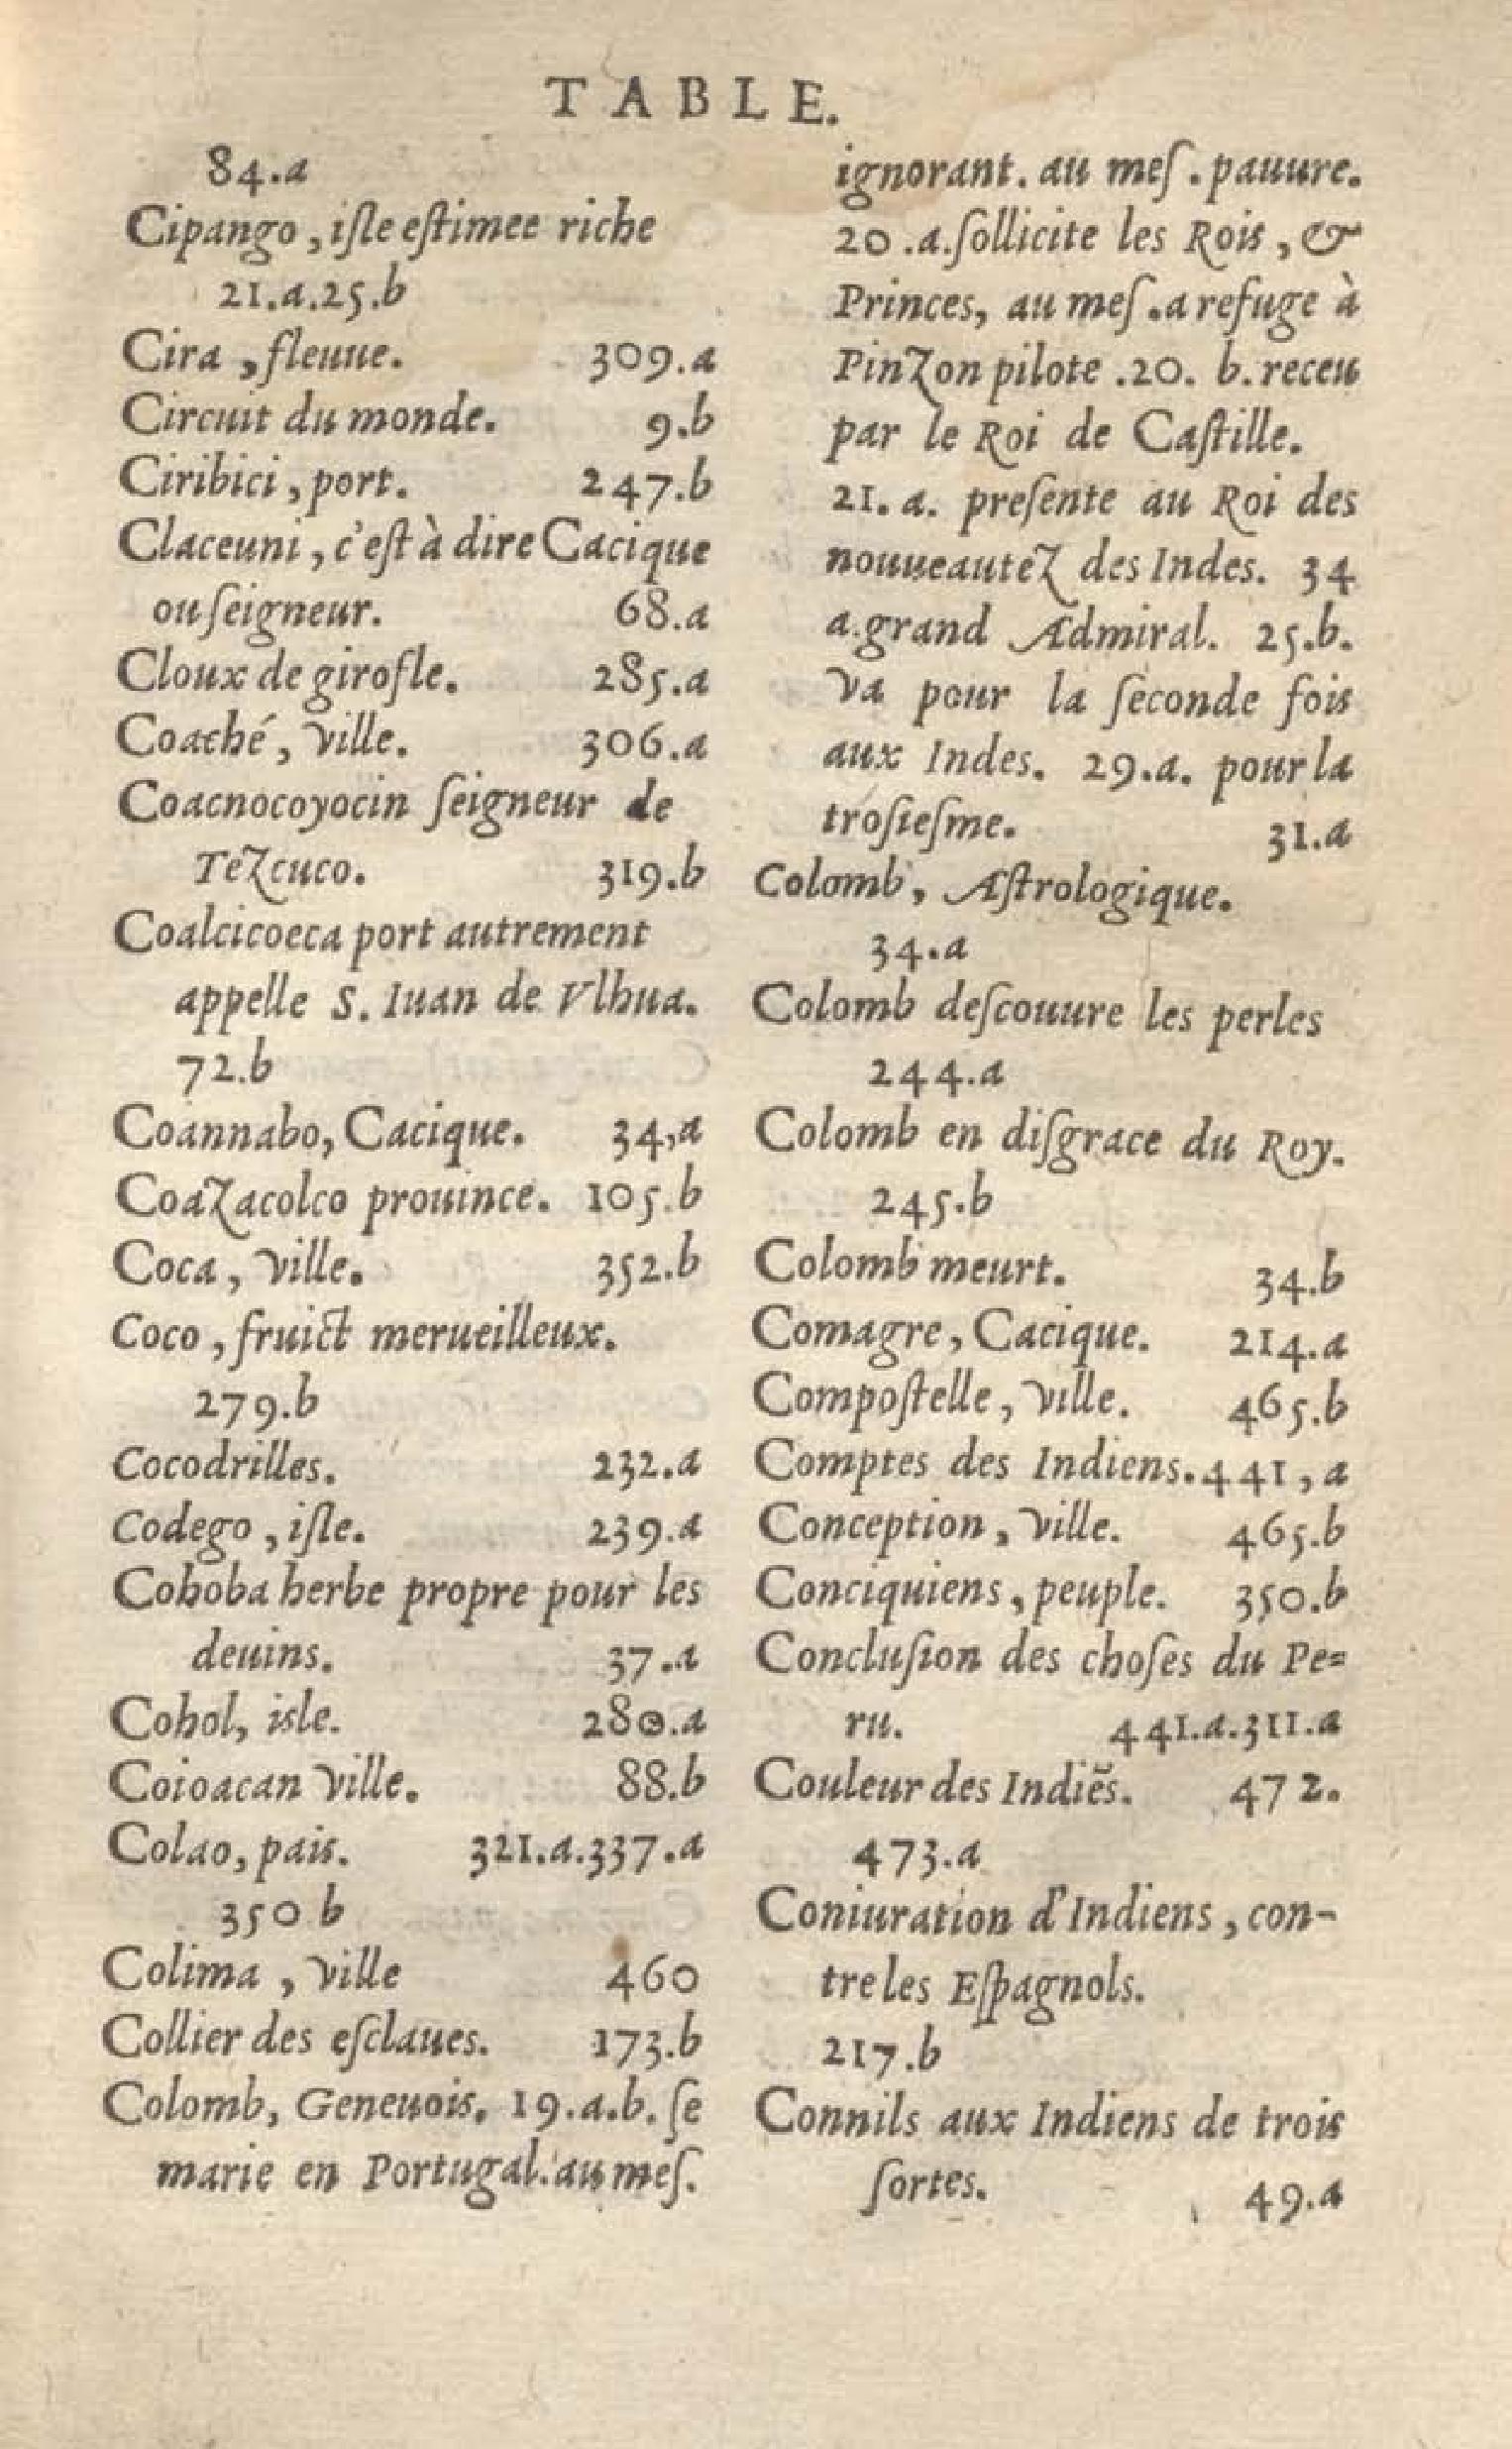 TABLE.
84.a
Cipango, iſle eſtimee riche
21.a.25.b
Cira, fleuue. 309.a
Circuit du monde. 9.b
Ciribici, port. 247.b
Claceuni, c'eſt à dire Cacique
ou ſeigneur. 68.a
Cloux de girofle. 285.a
Coaché, ville. 306.a
Coacnocoyocin ſeigneur de
Tezcuco. 319.b
Coalcicoeca port autrement
appelle S. Iuan de Vlhua.
72.b
Coannabo, Cacique. 34,a
Coazacolco prouince. 105.b
Coca, ville. 352.b
Coco, fruict merueilleux.
279.b
Cocodrilles. 232.a
Codego, iſle. 239.a
Cohoba herbe propre pour les
deuins. 37.a
Cohol, isle. 280.a
Coioacan ville. 88.b
Colao, pais. 321.a.337.a
350 b
Colima, ville 460
Collier des eſclaues. 173.b
Colomb, Geneuois. 19.a.b. ſe
marie en Portugal. au meſ.
ignorant. au meſ. pauure.
20.a. ſollicite les Rois, &
Princes, au meſ. a refuge à
Pinzon pilote .20. b. receu
par le Roi de Caſtille.
21. a. preſente au Roi des
nouueautez des Indes. 34
a.grand Admiral. 25.b.
va pour la ſeconde fois
aux Indes. 29.a. pour la
troſieſme. 31.a
Colomb, Aſtrologique.
34.a
Colomb deſcouure les perles
244.a
Colomb en diſgrace du Roy.
245.b
Colomb meurt. 34.b
Comagre, Cacique. 214.a
Compoſtelle, ville. 465.b
Comptes des Indiens. 441, a
Conception, ville. 465.b
Conciquiens, peuple. 350.b
Concluſion des choſes du Pe=
ru. 441.a.311.a
Couleur des Indiẽs. 472.
473.a
Coniuration d'Indiens, con-
tre les Eſpagnols.
217.b
Connils aux Indiens de trois
ſortes. 49.a